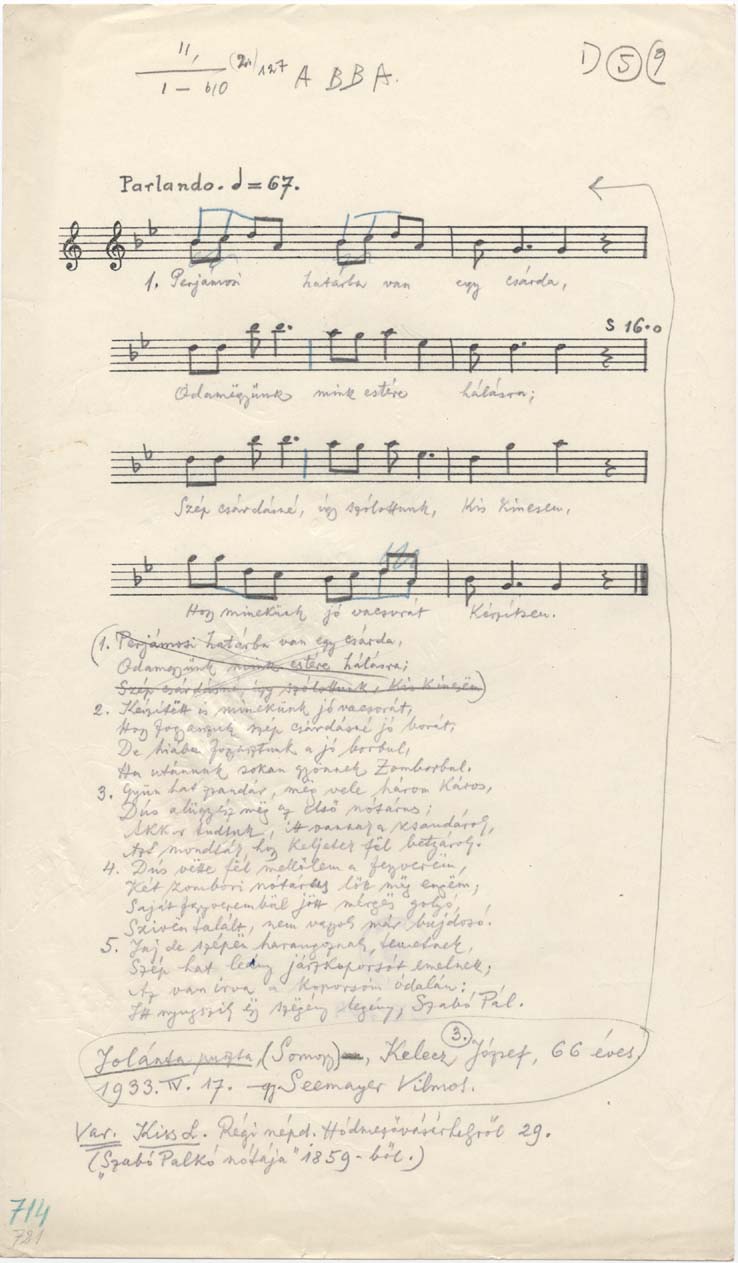 II,
1 – b10 (2n) 127 A B B A.
1) 5 9
Parlando. = 67.
1. Perjámosi határba van egy csárda,
S 16.0
Odamëgyünk mink estére hálásra;
Szép csárdásné, így szólottunk, kis kincsem,
Hogy minekünk jó vacsorát készítsen.
(1. Perjámosi határba van egy csárda,
Odamegyünk mink estére hálásra;
Szép csárdásné így szólottunk, kis kincsëm)
2. Készített is minekünk jó vacsorát,
Hogy fogyasszuk szép csárdásné jó borát,
De hiába fogyasztunk a jó borbul,
Ha utánunk sokan gyönnek Zomborbul.
3. Gyün hat pandúr, még vele három káros,
Dús alügyész mëg az első nótárus;
Akkor tudtuk, itt vannak a
Azt mondták, hogy keljetek föl betyárok.
4. Dús vëtte föl mellőlem a fegyverëm,
Két zombori nótárus lőtt mëg engëm;
Saját fegyverembül jött mérgës golyó,
Szivën talált, nem vagyok már bujdosó.
5. Jaj de szépën harangoznak, temetnek,
Szép hat leány járja koporsót emelnek;
Az van írva a koporsóm ódalán:
Itt nyugszik ëgy szëgény legény, Szabó Pál.
3.
Jolánta puszta, (Somogy), Kelecz József, 66 éves.
1933. IV. 17. gy. Seemayer Vilmos.
Var. Kiss L. Régi népd. Hódmezővásárhelyről 29.
("Szabó Palkó nótája" 1859-ből.)
714
721